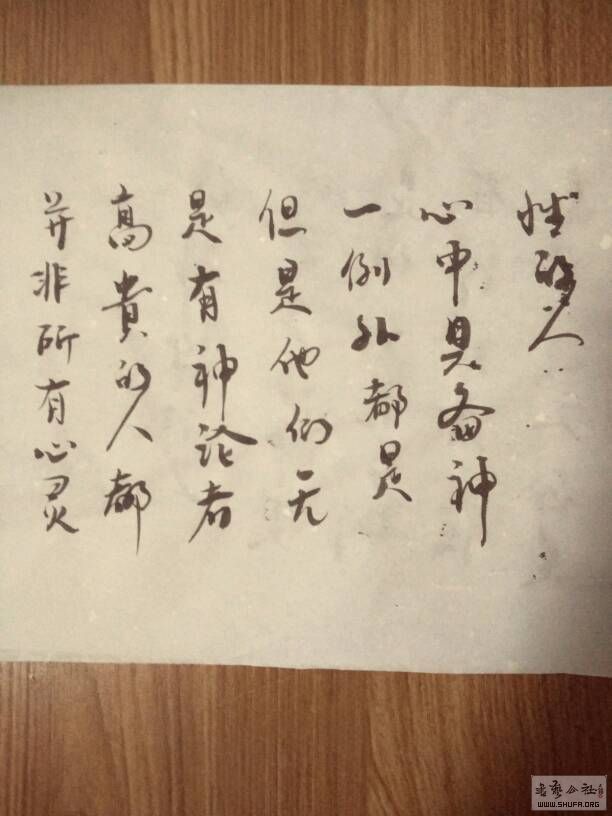 并非所有心灵
高貴的人都
是有神论者
但是他们无
一例外都是
心中具备神
性的人
书艺公社
WWW.SHUFA.ORG